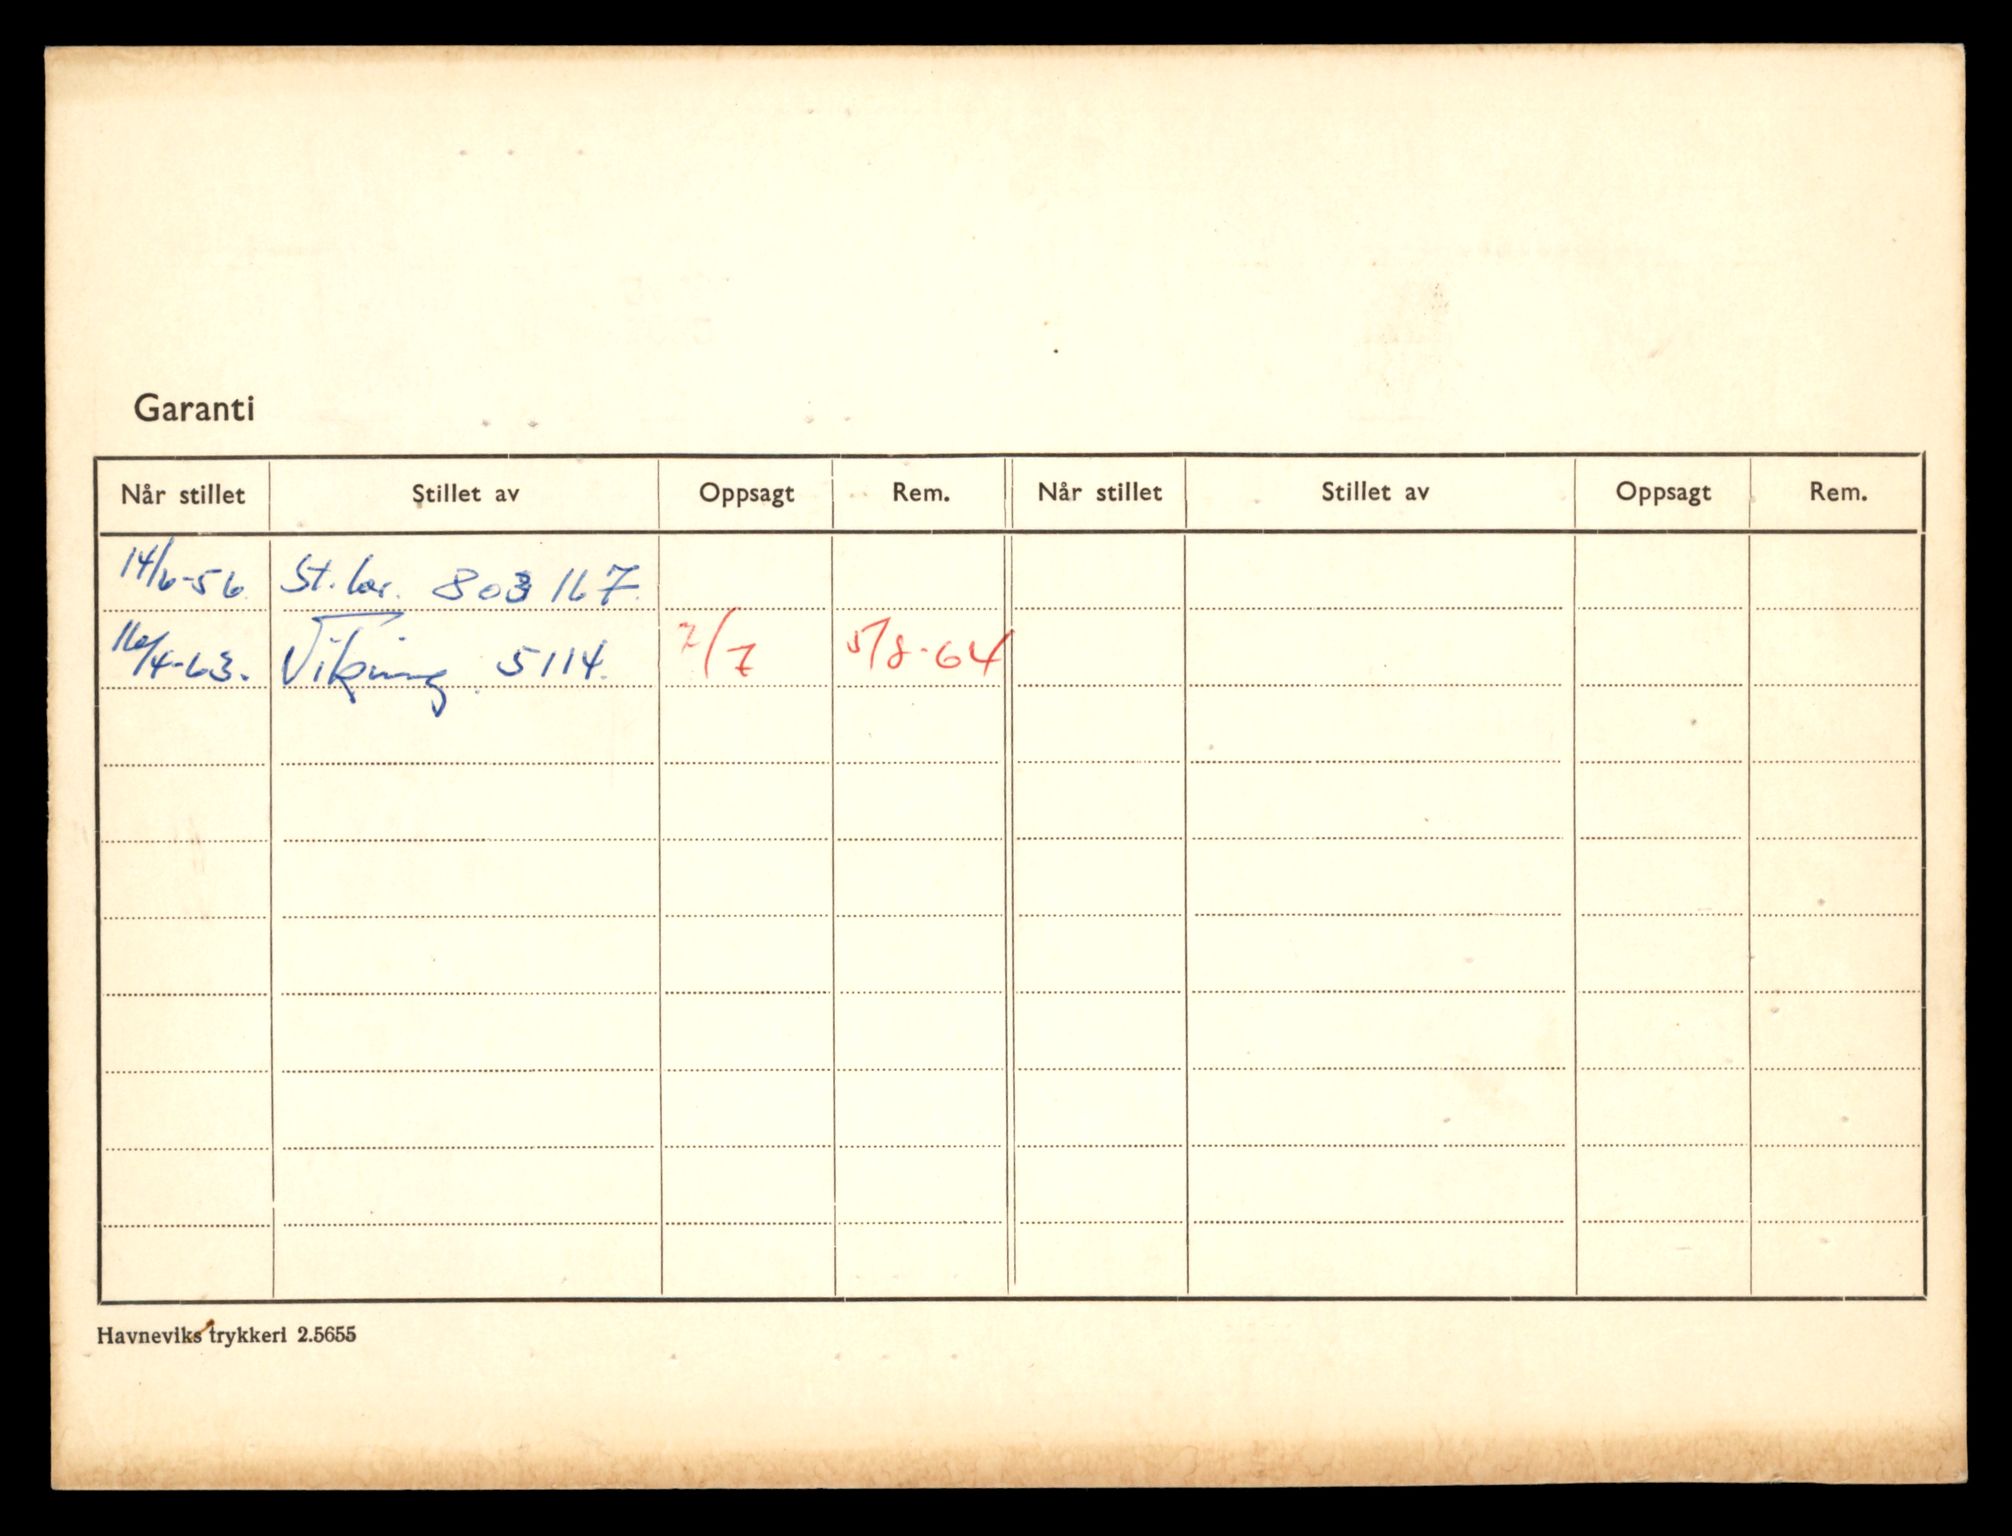 Garanti
Når stillet Stillet av Oppsagt Rem. Når stillet Stillet av Oppsagt Rem.
14/6-56 St. bar. 803167.
16/4-63. Viking 5114. 2/7 5/8-64
Havneviks trykkeri 2.5655